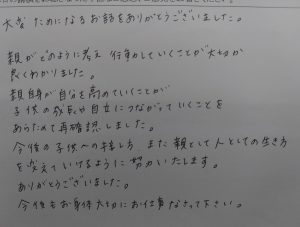 大変 ためになるお話をありがとうございました。
親がどのように考え 行動していくことが大切か
良くわかりました。
親自身が自分を高めていくことが
子供の成長や自立につながっていくことを
あらためて再確認しました。
今後の子供への接し方、また親として人としての生き方
を変えていけるように努力いたします。
ありがとうございました。
今後もお身体大切にお仕事なさって下さい。